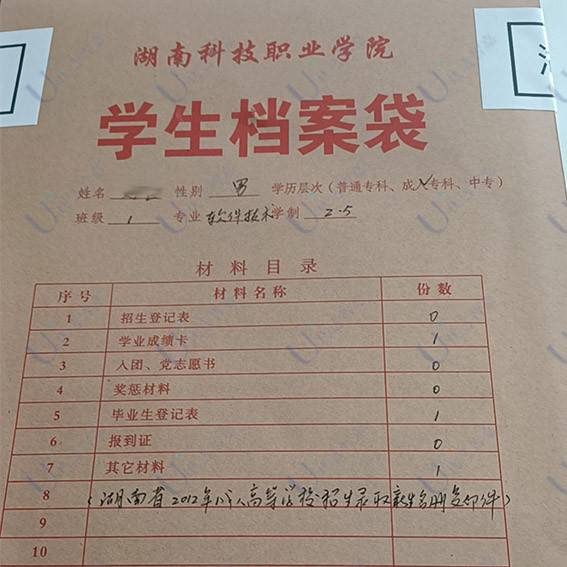 湖南科技职业学院
学生档案袋
姓名 性别 男 学历层次（普通专科、成人专科、中专）
班级 1 专业 软件技术 学制 2.5
材料目录
序号 材料名称 份数
1 招生登记表 0
2 学业成绩卡 1
3 入团、党志愿书 0
4 奖惩材料 0
5 毕业生登记表 1
6 报到证 0
7 其它材料 1
8 （湖南省2012年成人高等学校招生录取新生名册复印件）
9
10